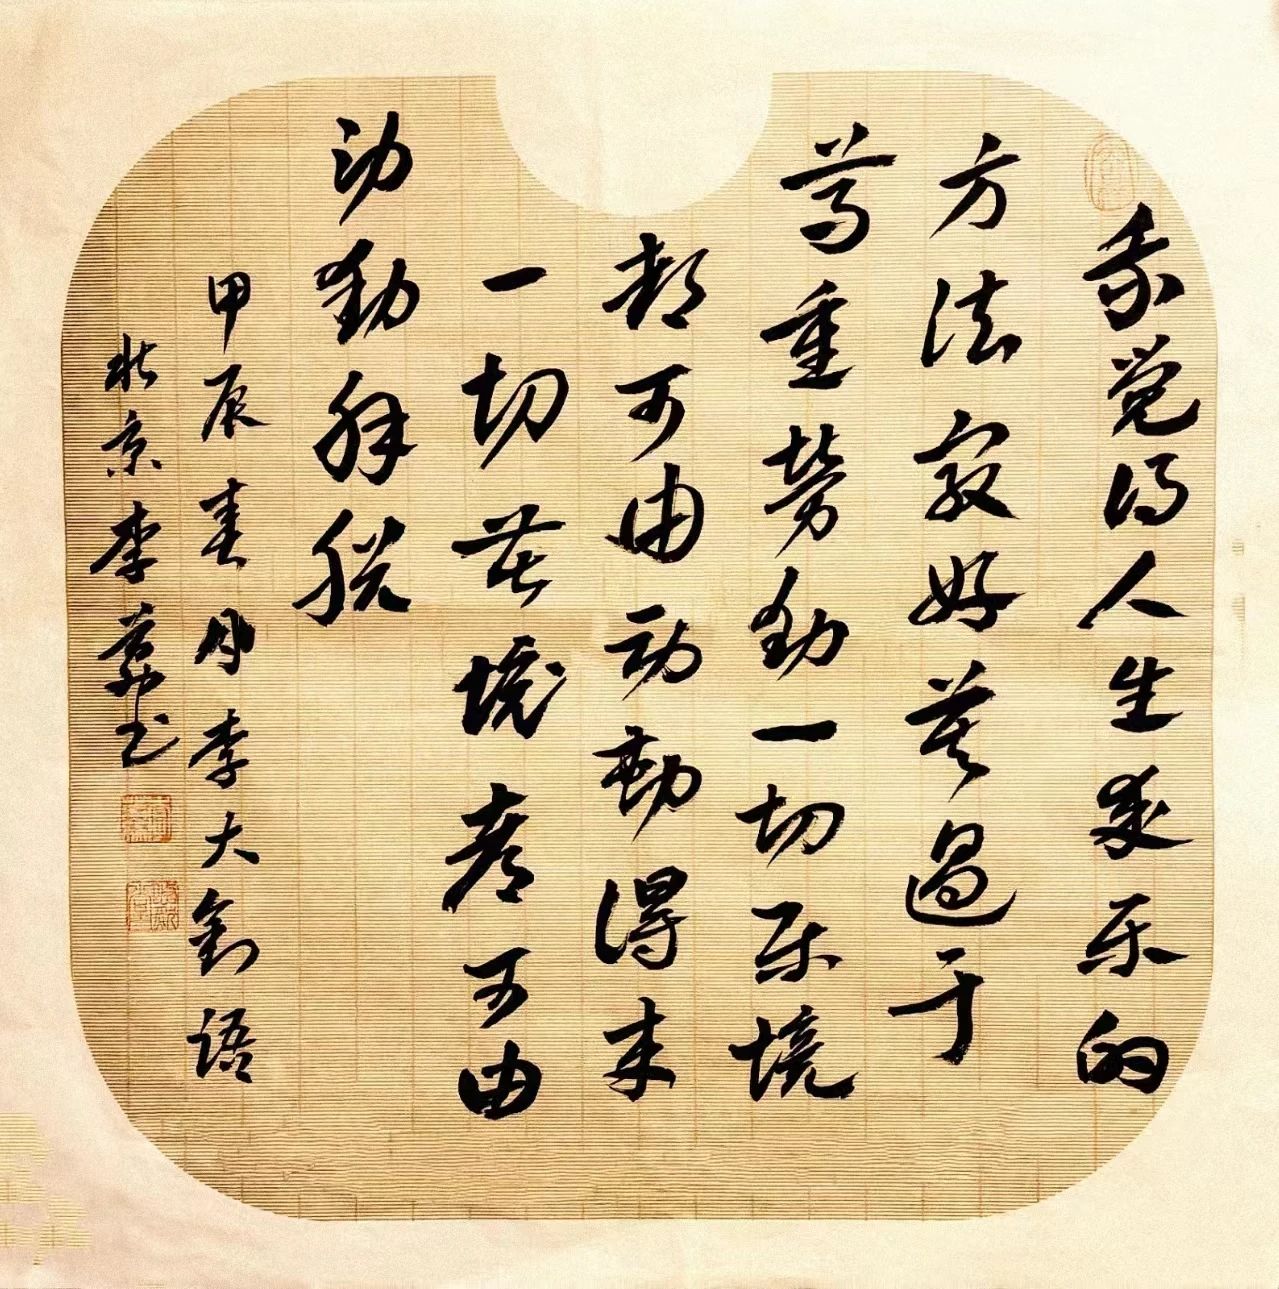 我觉得人生求乐的
方法最好莫过于
尊重勞動一切乐境
都可由劳動得来
一切苦境都可由
劳動解脱
甲辰春月李大釗语
北京李书